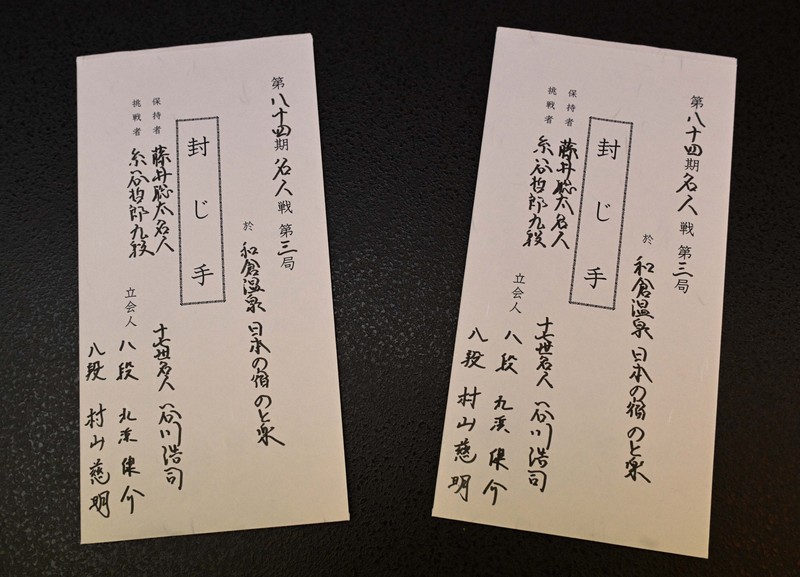 第八十四期名人戦 第三局
於 和倉温泉 日本の宿 のと楽
封じ手
保持者 藤井聡太名人
挑戦者 糸谷哲郎九段
立会人 十七世名人 谷川浩司
八段 丸渓 俊介
八段 村山慈明
第八十四期名人戦 第三局
於 和倉温泉 日本の宿 のと楽
封じ手
保持者 藤井聡太名人
挑戦者 糸谷哲郎九段
立会人 十七世名人 谷川浩司
八段 介
八段 村山慈明